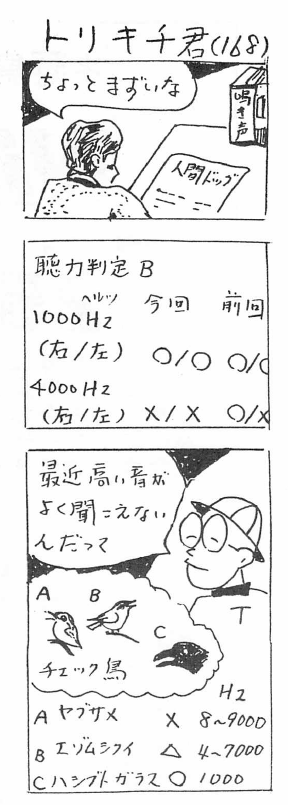 トリキチ君(168)
ちょっとまずいな
鳴き声
人間ドック
聴力判定 B
ヘルツ 今回 前回
1000Hz
(右/左) ○/○ ○/○
4000Hz
(右/左) ×/× ○/×
最近高い音が
よく聞こえない
んだって
T
A B
C
チェック鳥
Hz
A ヤブサメ × 8~9000
B エゾムシクイ △ 4~7000
C ハシブトガラス ○ 1000